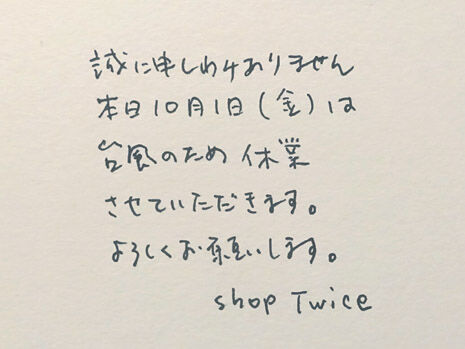 誠に申しわけありません
本日10月1日(金)は
台風のため 休業
させていただきます。
よろしくお願いします。
shop Twice